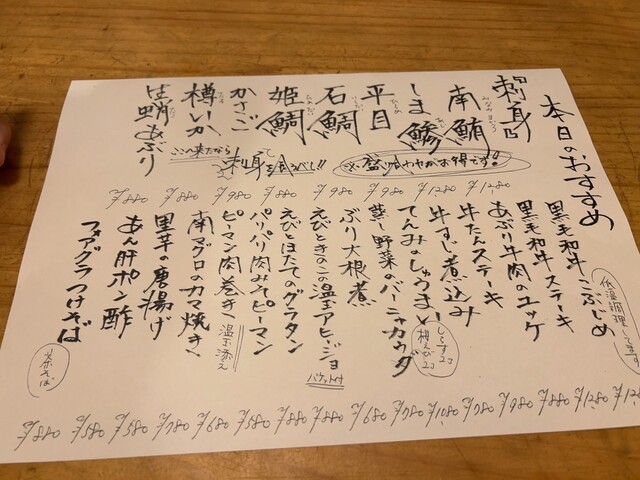 本日のおすすめ
『刺身』
南鮪
しま鯵
平目
石鯛
姫鯛
かさご
樽いか
生蛸あぶり
ココへ来たなら
刺身を
¥1,280
¥1280
¥980
¥980
¥880
¥980
¥880
¥880
低温調理してます
黒毛和牛こぶじめ
黒毛和牛ステーキ
あぶり牛肉のユッケ
牛たんステーキ
牛すじ煮込み
てんみのしゅうまい
しらす2コ
桜えび2コ
蒸し野菜のバーニャカウダ
ぶり大根煮
えびときのこの温玉アヒージョ
バケット付
えびとほたてのグラタン
パリパリ肉みそピーマン
ピーマン肉巻き
温玉添え
南マグロのカマ焼き
里芋の唐揚げ
あん肝ポン酢
フォアグラつけそば
茶そば
¥1,280
¥880
¥980
¥780
¥1,080
¥780
¥680
¥880
¥880
¥580
¥680
¥780
¥580
¥580
¥880